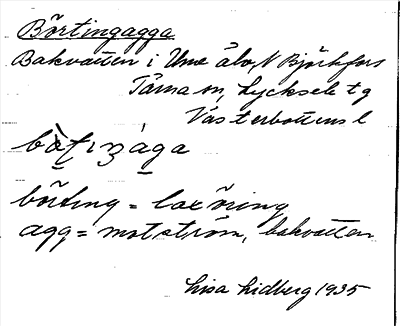 Börtingagga
Bakvatten i Ume älv, N Björkfors
Tärna sn, Lycksele tg
Västerbottens l
börting = laxöring
agg = motström, bakvatten
Lisa Lidberg 1935